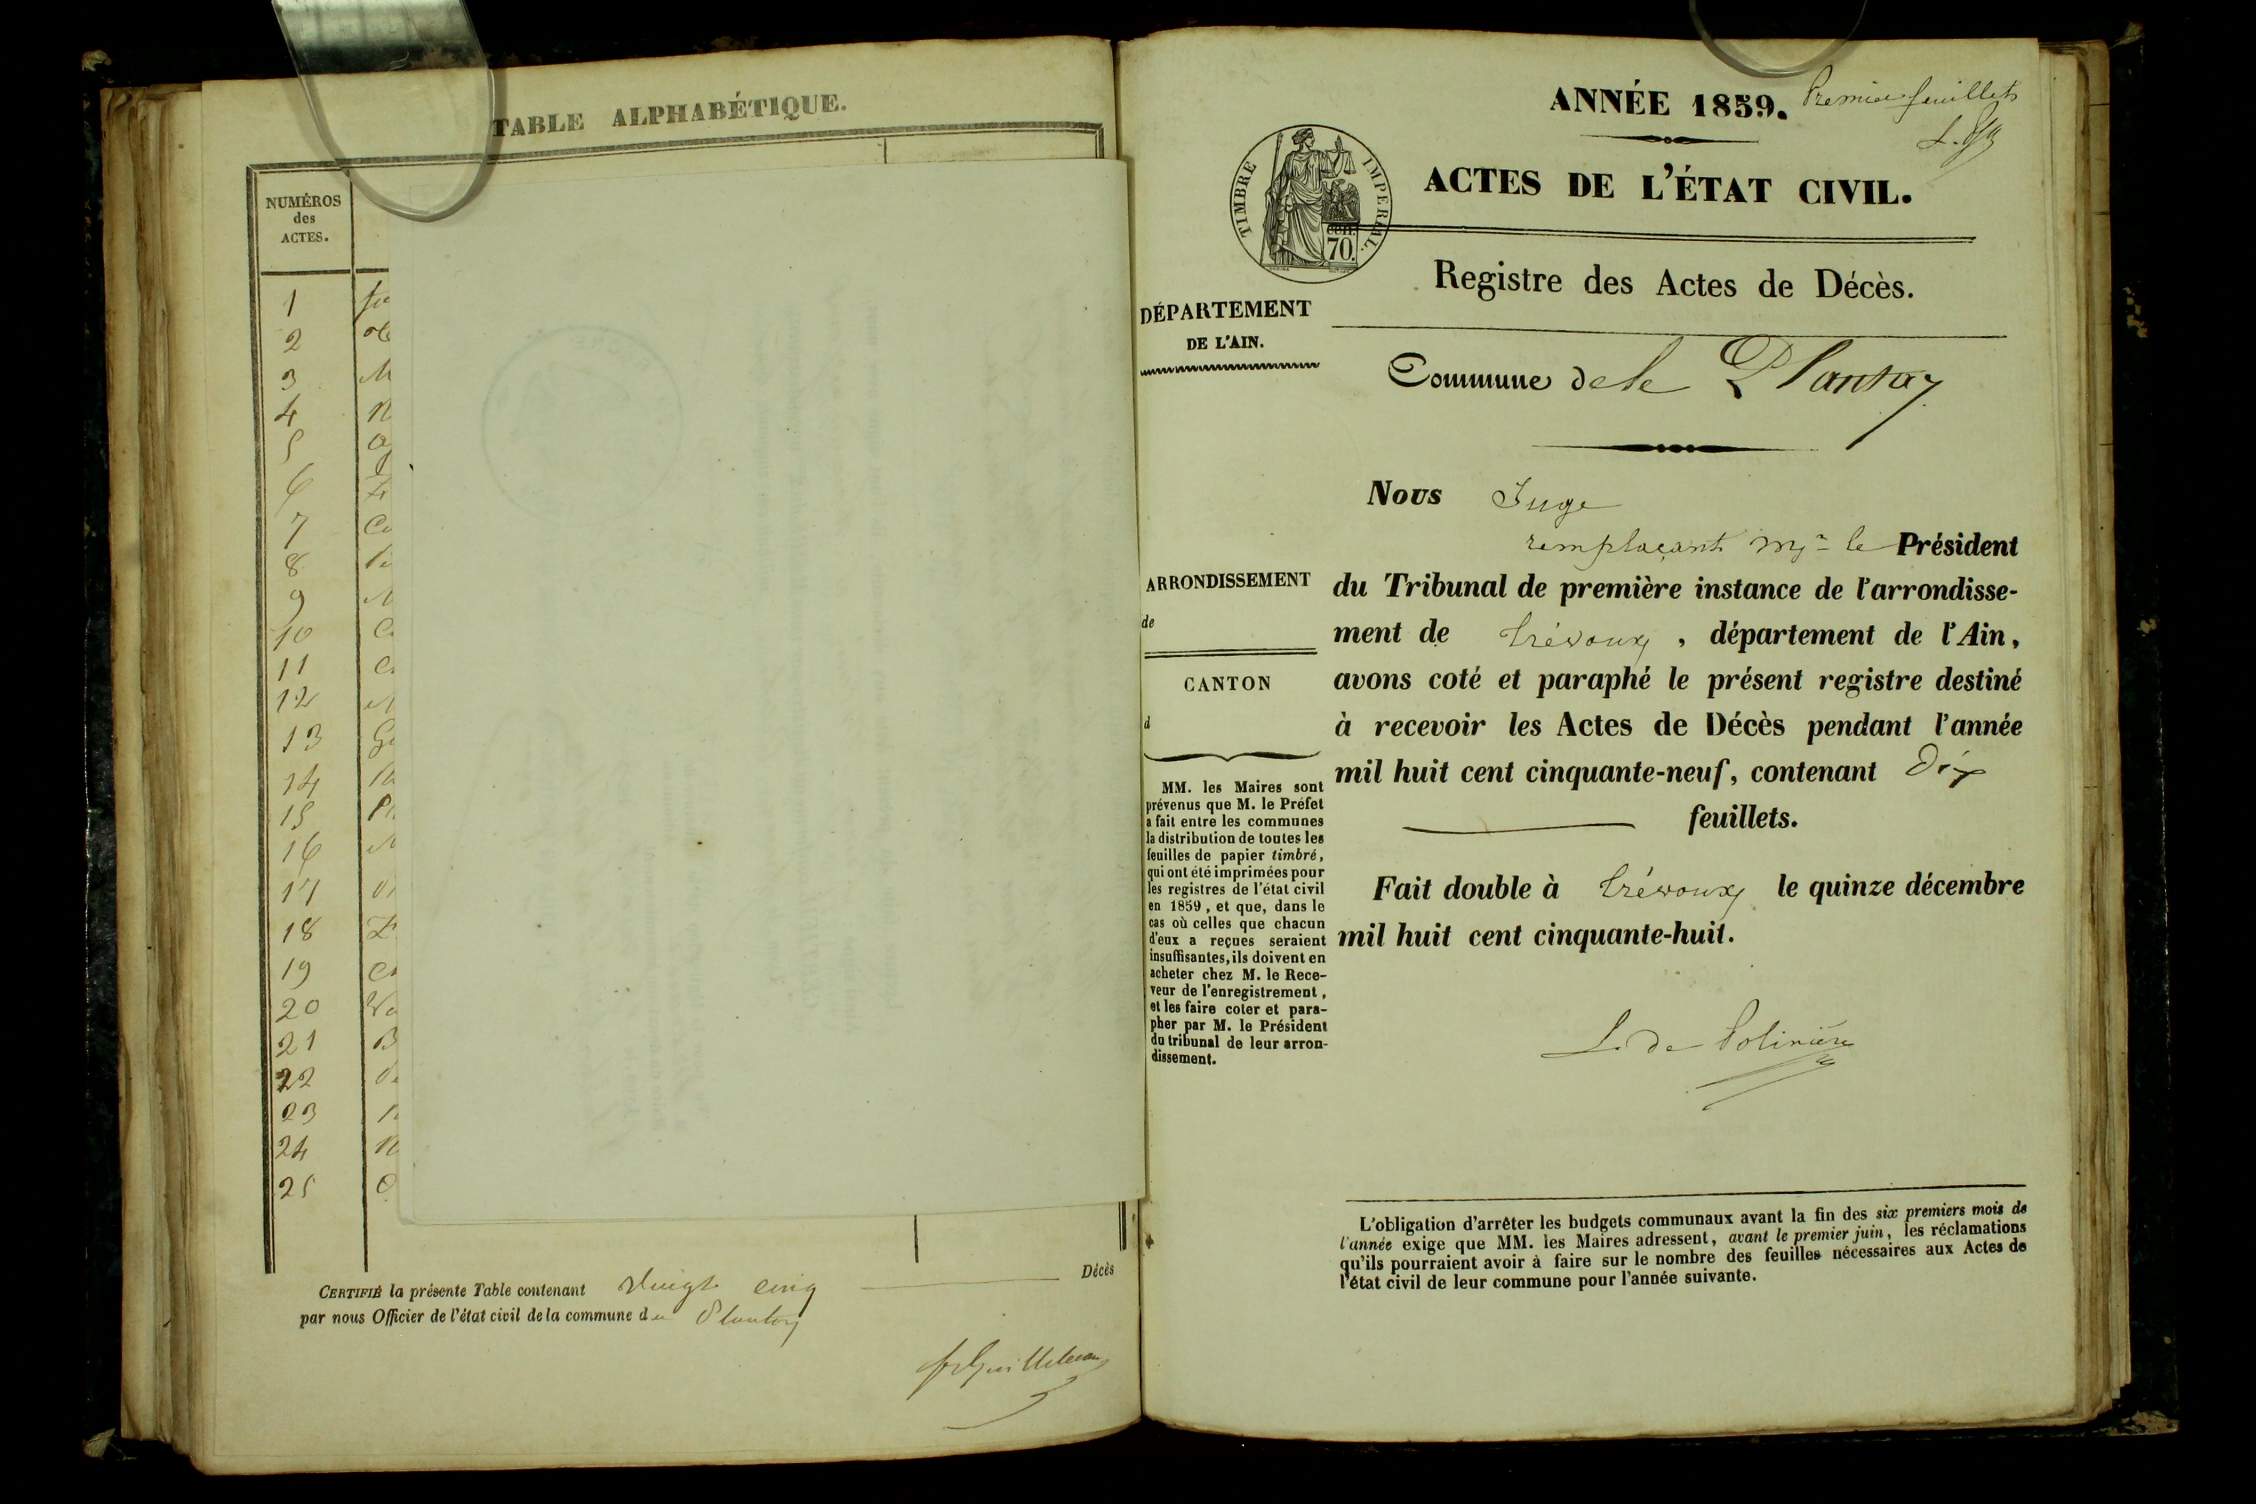 TABLE ALPHABÉTIQUE.
NUMÉROS
des
ACTES.
1
2
3
4
5
6
7
8
9
10
11
12
13
14
15
16
17
18
19
20
21
22
23
24
25
CERTIFIÉ la présente Table contenant Vingt cinq Décès
par nous Officier de l'état civil de la commune du Plantay
ANNÉE 1859. Premier feuillets
ACTES DE L'ÉTAT CIVIL.
TIMBRE IMPERIAL.
CEN.
70.
Registre des Actes de Décès.
DÉPARTEMENT
DE L'AIN.
Commune de le Plantay
Nous Juge
remplaçant Mr le Président
du Tribunal de première instance de l'arrondisse-
ment de Trévoux, département de l'Ain,
avons coté et paraphé le présent registre destiné
à recevoir les Actes de Décès pendant l'année
mil huit cent cinquante-neuf, contenant Dix
feuillets.
Fait double à Trévoux le quinze décembre
mil huit cent cinquante-huit.
L. de Polinière
ARRONDISSEMENT
de
CANTON
d
MM. les Maires sont
prévenus que M. le Préfet
a fait entre les communes
la distribution de toutes les
feuilles de papier timbré,
qui ont été imprimées pour
les registres de l'état civil
en 1859, et que, dans le
cas où celles que chacun
d'eux a reçues seraient
insuffisantes, ils doivent en
acheter chez M. le Rece-
veur de l'enregistrement,
et les faire coter et para-
pher par M. le Président
du tribunal de leur arron-
dissement.
L'obligation d'arrêter les budgets communaux avant la fin des six premiers mois de
l'année exige que MM. les Maires adressent, avant le premier juin, les réclamations
qu'ils pourraient avoir à faire sur le nombre des feuilles nécessaires aux Actes de
l'état civil de leur commune pour l'année suivante.